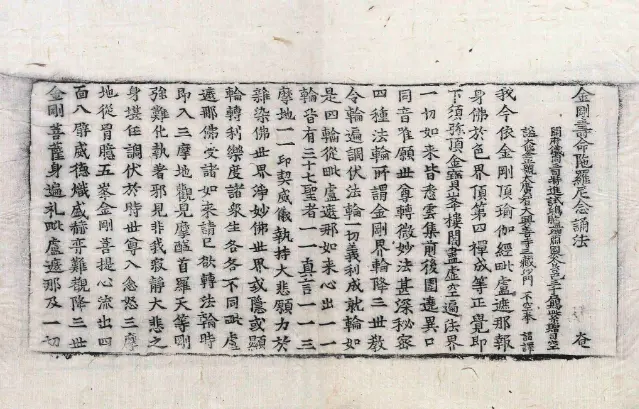 金剛壽命陁羅尼念誦法
開府儀同三司特進試鴻臚卿肅國公食邑三千戶賜紫贈司空
大廣智大興善寺三藏沙門 不空奉 詔譯
我今依金剛頂瑜伽經毗盧遮那報
身佛於色界頂第四禪成等正覺即
下須弥頂金寶峯樓閣盡虛空遍法界
一切如來皆悉雲集前後圍遶異口
同音惟願世尊轉微妙法甚深秘密
四種法輪所謂金剛界輪降三世教
令輪遍調伏法輪一切義利成就輪如
是四輪從毗盧遮那如來心出一一
輪皆有三十七聖者一一真言一一三
摩地一一印契威儀執持大悲願力於
雜染佛世界淨妙佛世界或隱或顯
輪轉利樂度諸衆生各各不同毗盧
遮那佛受諸如來請已欲轉法輪時
即入三摩地觀見摩醯首羅天等剛
強難化執著邪見非我寂靜大悲之
身堪任調伏於時世尊入忿怒三摩
地從胷臆五峯金剛菩提心流出四
面八臂威德熾盛赫奕難覩降三世
金剛菩薩身遍礼毗盧遮那及一切